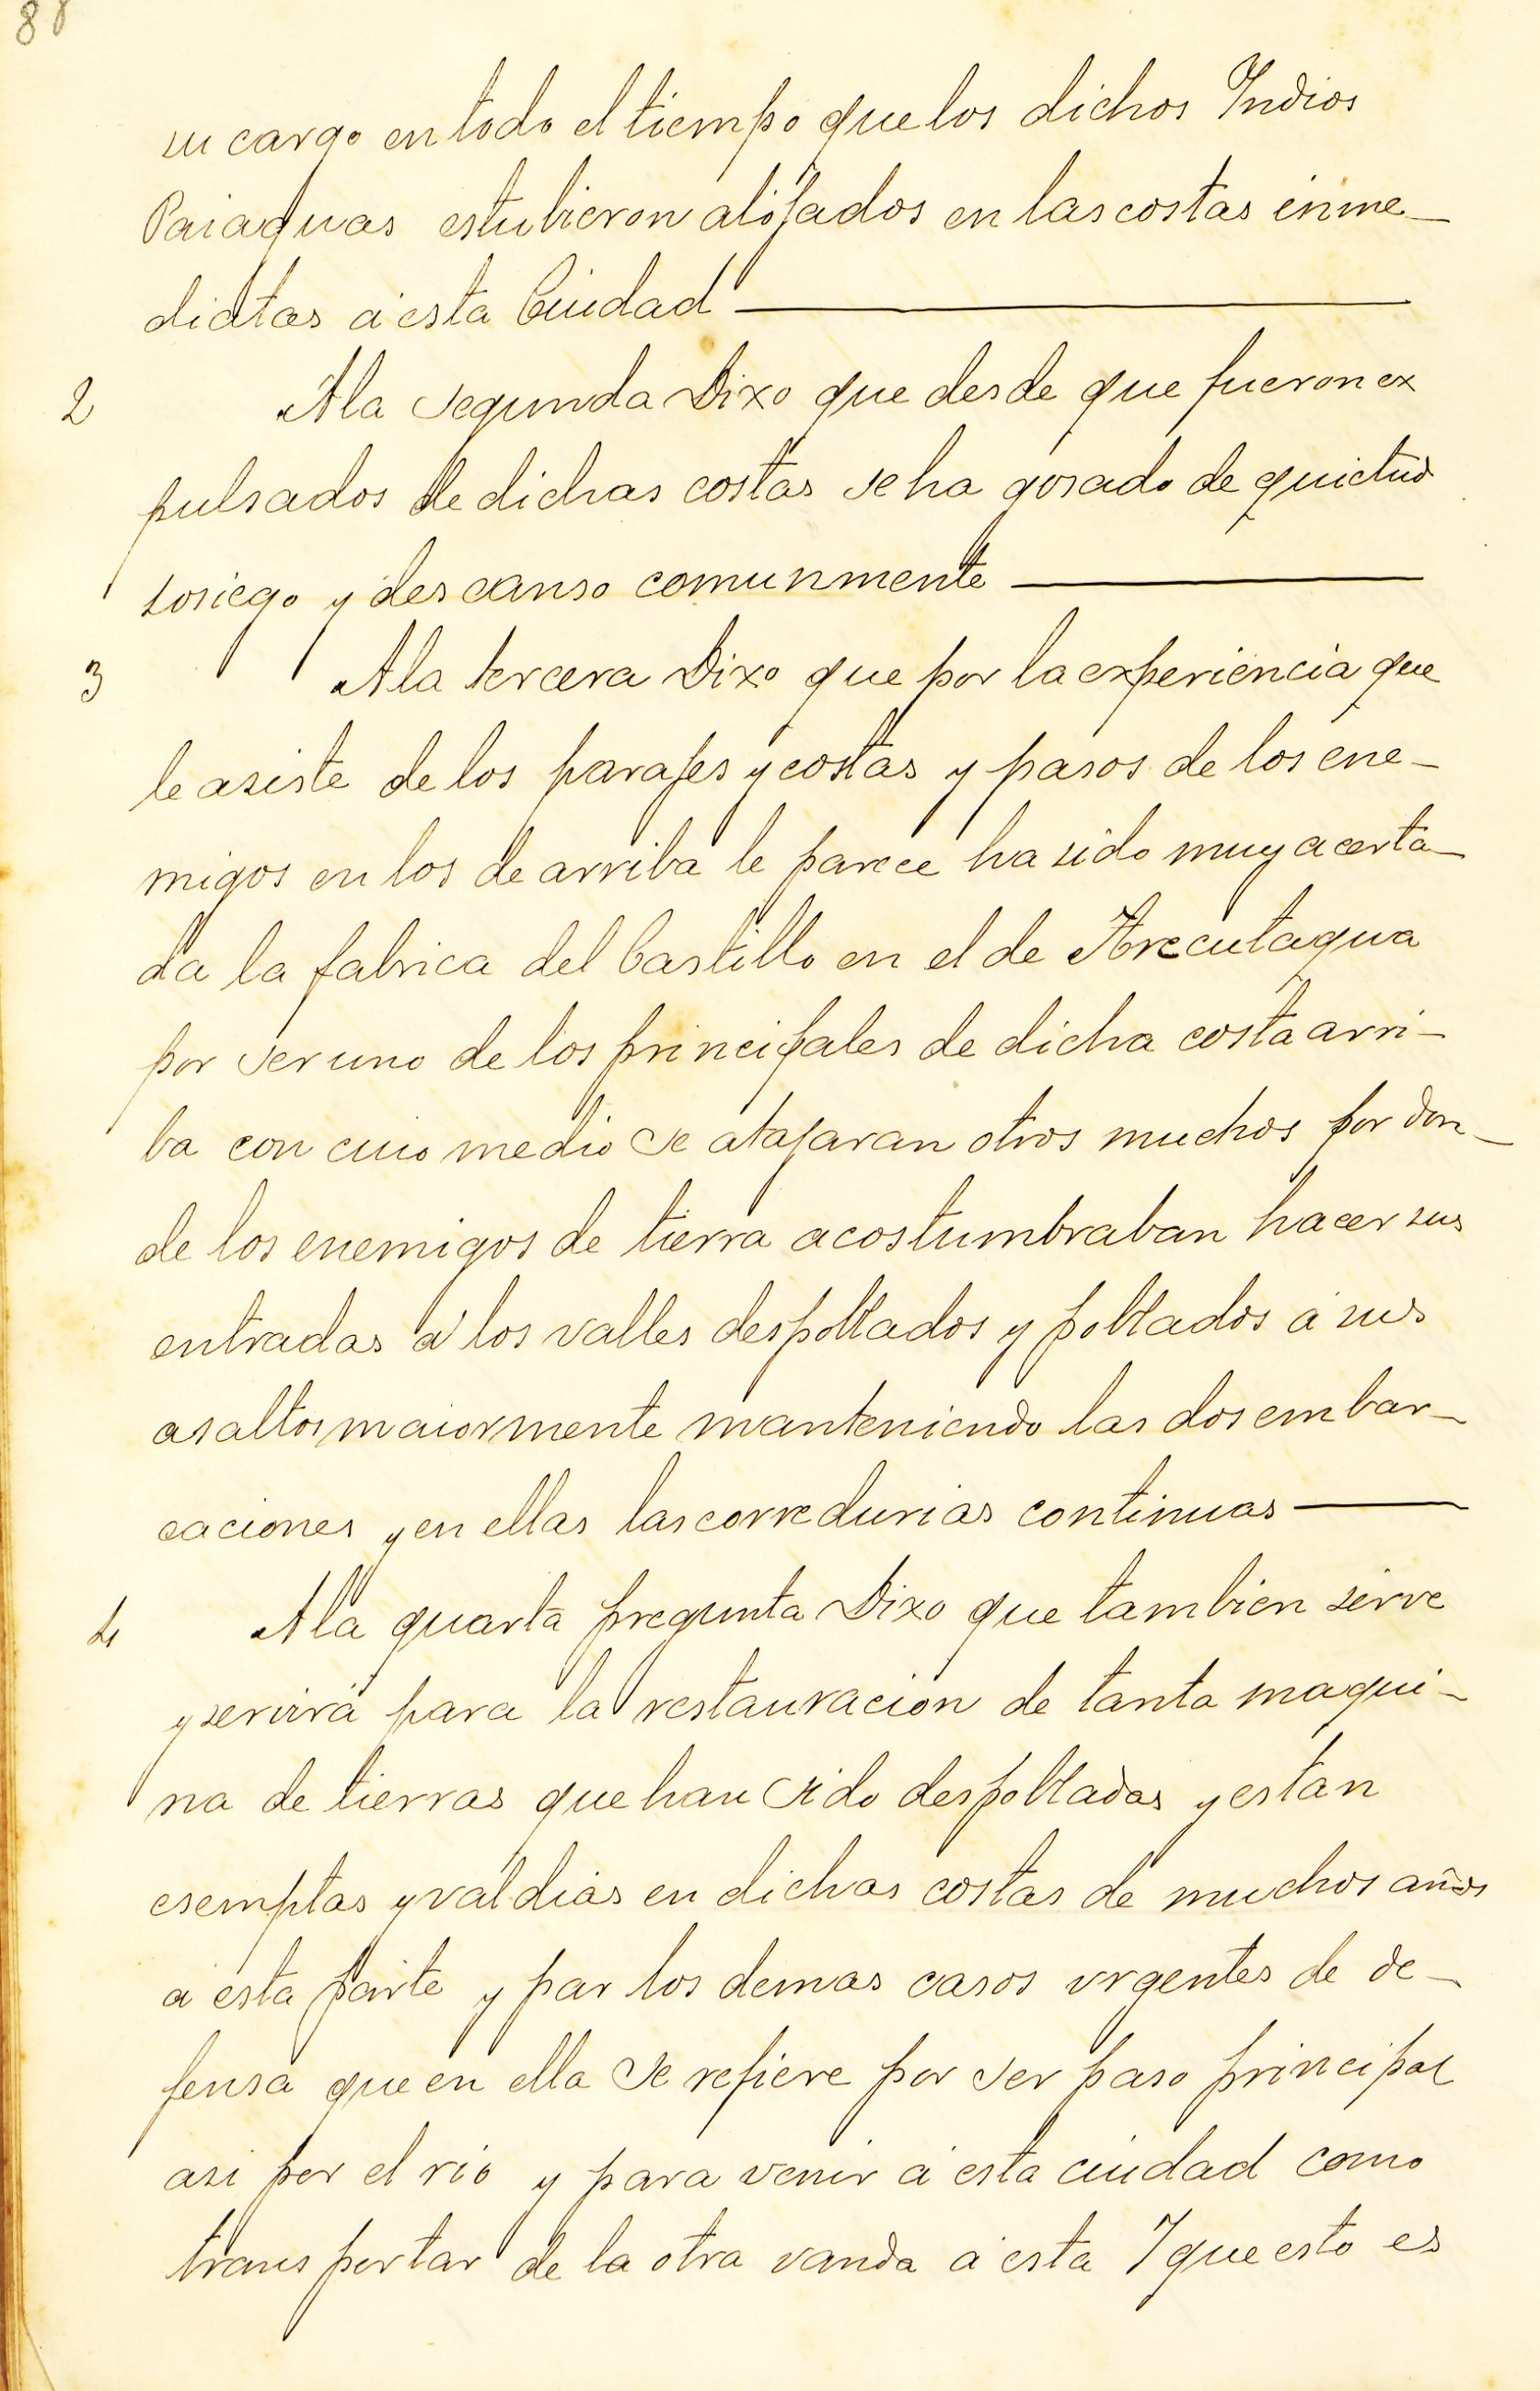 88
su cargo en todo el tiempo que los dichos Indios
Paiaguas estubieron alojados en las costas inme-
diatas á esta Ciudad
2 A la segunda Dixo que desde que fueron ex
pulsados de dichas costas se ha gosado de quietud
sosiego y descanso comunmente
3 A la tercera Dixo que por la experiencia que
le asiste de los parajes y costas y pasos de los ene-
migos en los de arriba le parece ha sido muy acerta-
da la fabrica del Castillo en el de Arecutagua
por ser uno de los principales de dicha costa arri-
ba con cuio medio se atajaran otros muchos por don-
de los enemigos de tierra acostumbraban hacer sus
entradas á los valles despoblados y poblados á sus
asaltos maiormente manteniendo las dos embar-
caciones y en ellas las corredurias continuas
4 A la quarta pregunta Dixo que tambien sirve
y servirá para la restauracion de tanta maqui-
na de tierras que han sido despobladas y estan
esemptas y valdias en dichas costas de muchos años
á esta parte y par los demas casos urgentes de de-
fensa que en ella se refiere por ser paso principal
asi por el rio y para venir á esta ciudad como
transportar de la otra vanda á esta Y que esto es